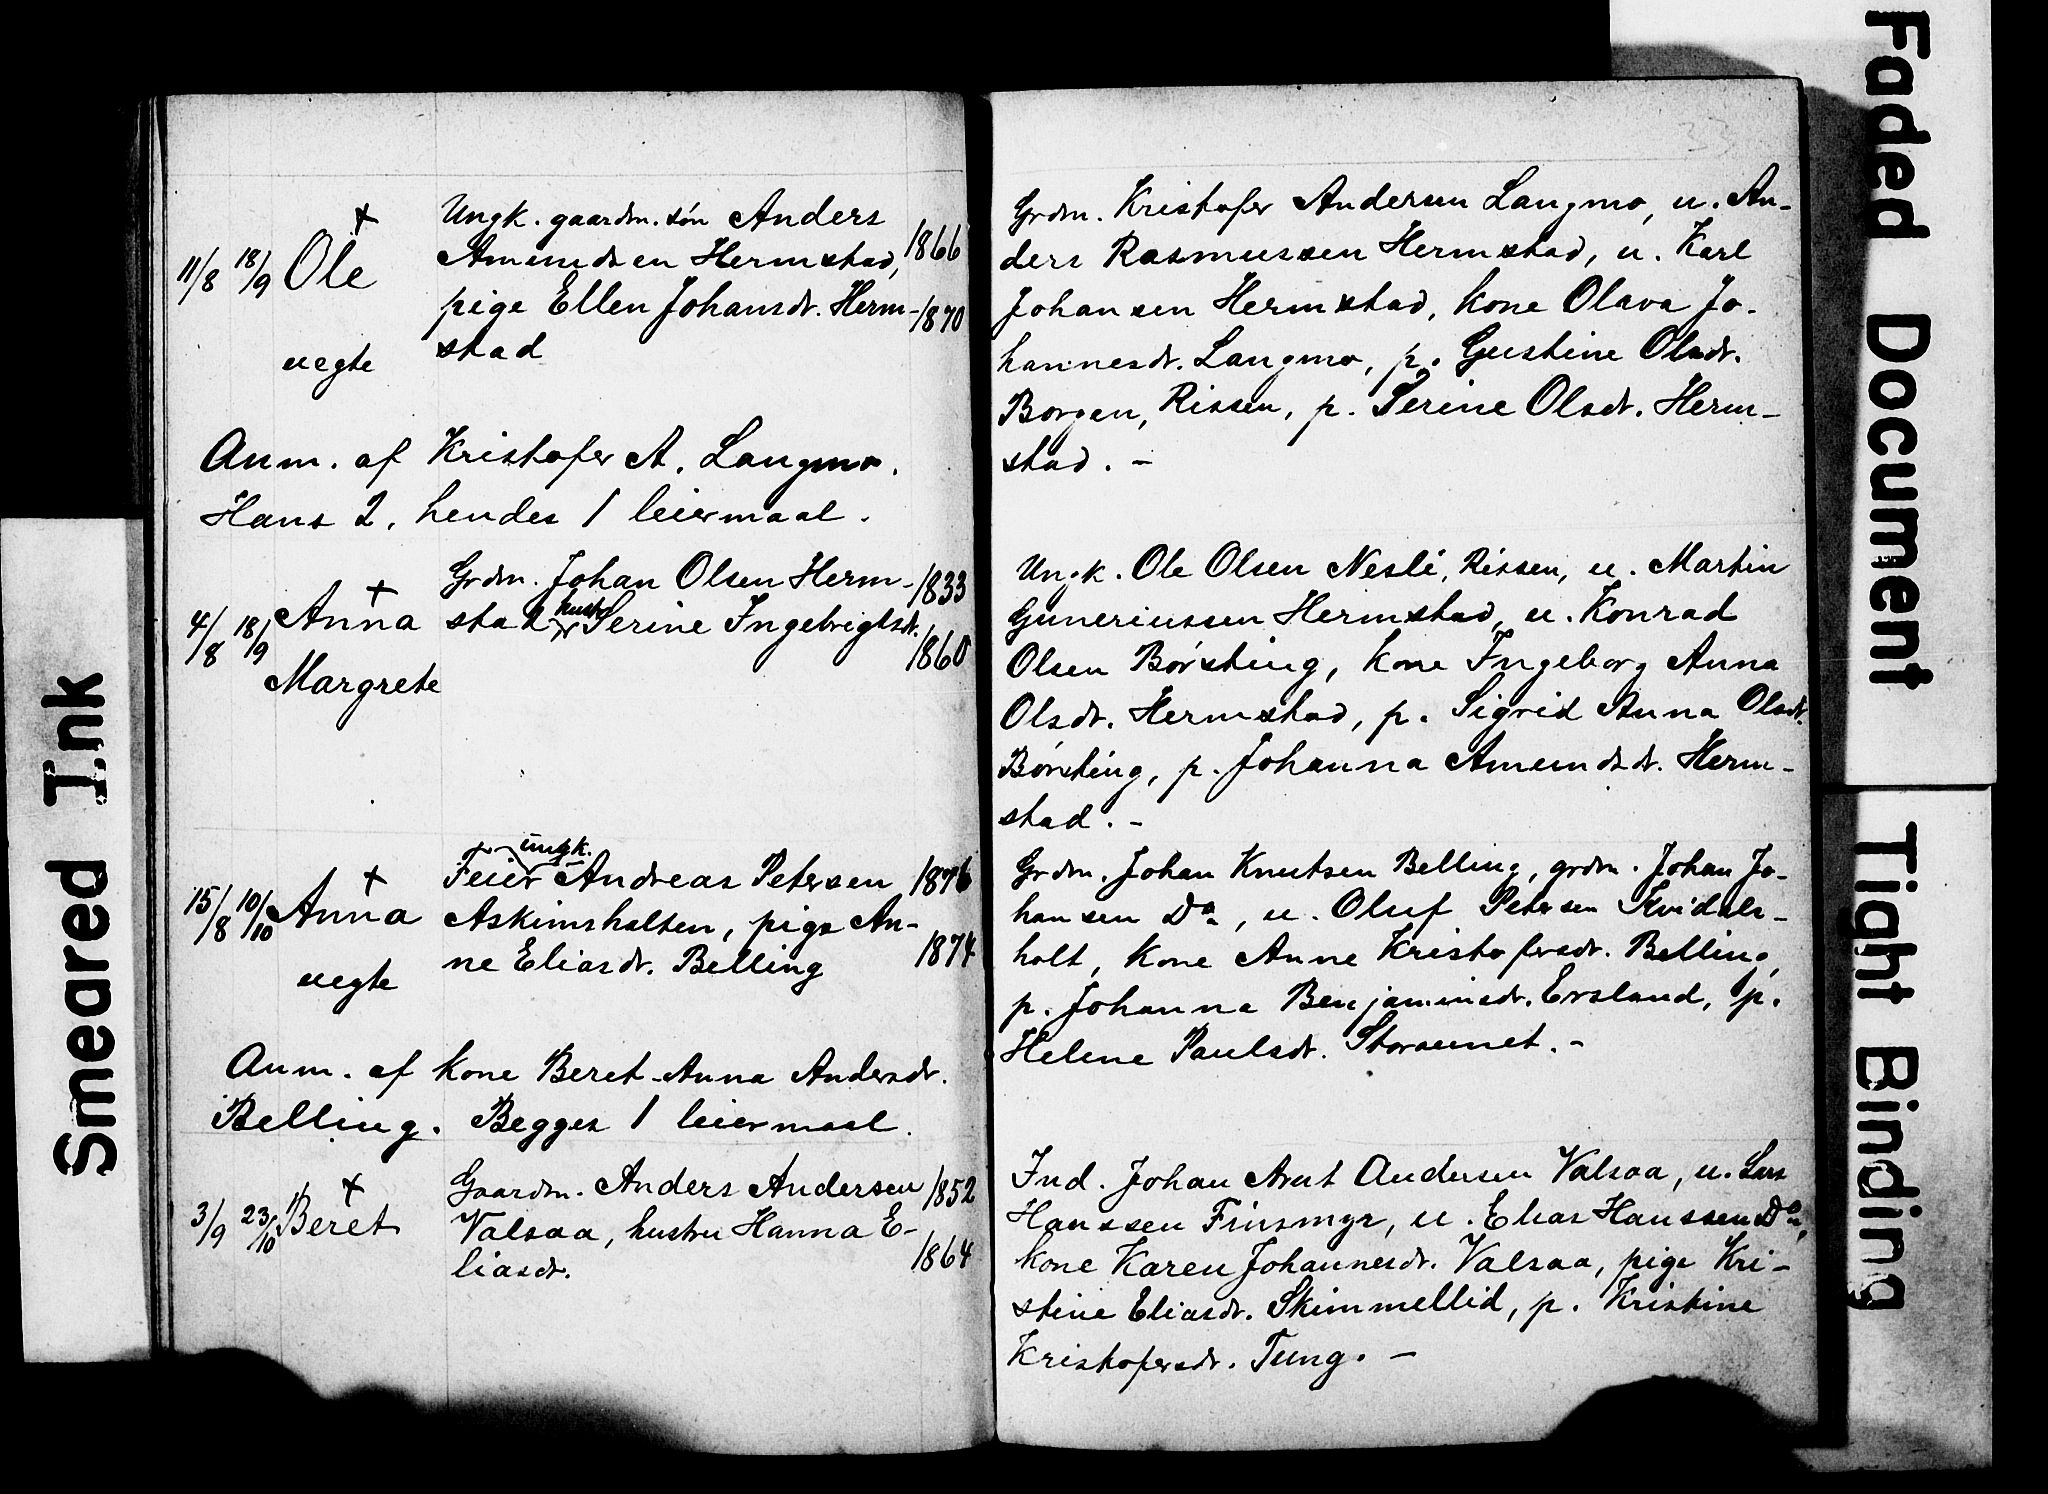 Ungk. gaardm. søn Anders 1866
11/8 18/9 + Ole Amundsen Hermstad,
pige Ellen Johansdt. Herm- 1870
uegte stad
Anm. af Kristofer A. Langmo.
Hans 2, hendes 1 leiermaal.
Grdm. Johan Olsen Herm- 1833
4/8 18/9 + Anna stad hustr Serine Ingebrigtsdt. 1860
Margrete
Feier ungk. Andreas Petersen 1876
15/8 10/10 + Anna Askimsholten, pige An- 1874
uegte ne Eliasdt. Belling
Anm. af kone Beret-Anna Andersdt.
Belling. Begges 1 leiermaal.
Gaardm. Anders Andersen 1852
3/9 23/10 + Beret Valsaa, hustru Hanna E- 1864
liasdt.
33
Grdm. Kristofer Andersen Langmo, u. An-
ders Rasmussen Hermstad, u. Karl
Johansen Hermstad, kone Olava Jo-
hannesdt. Langmo, p. Gustine Olsdt.
Borgen, Rissen, p. Serine Olsdt. Herm-
stad. -
Ungk. Ole Olsen Nesli, Rissen, u. Martin
Guneriussen Hermstad, u. Konrad
Olsen Børsting, kone Ingeborg Anna
Olsdt. Hermstad, p. Sigrid Anna Olsdt.
Børsting, p. Johanna Amundsdt. Herm-
stad. -
Grdm. Johan Knutsen Belling, grdm. Johan Jo-
hansen Do, u. Oluf Petersen Kvidals-
holt, kone Anne Kristofersdt. Belling,
p. Johanna Benjaminsdt. Ersland, p.
Helene Paulsdt. Storaunet. -
Ind. Johan Arnt Andersen Valsaa, u. Lars
Hanssen Finsmyr, u. Elias Hanssen Do,
kone Karen Johannesdt. Valsaa, pige Kri-
stine Eliasdt. Skimmellid, p. Kristine
Kristofersdt. Tung. -
Smeared Ink
Faded Document
Tight Binding